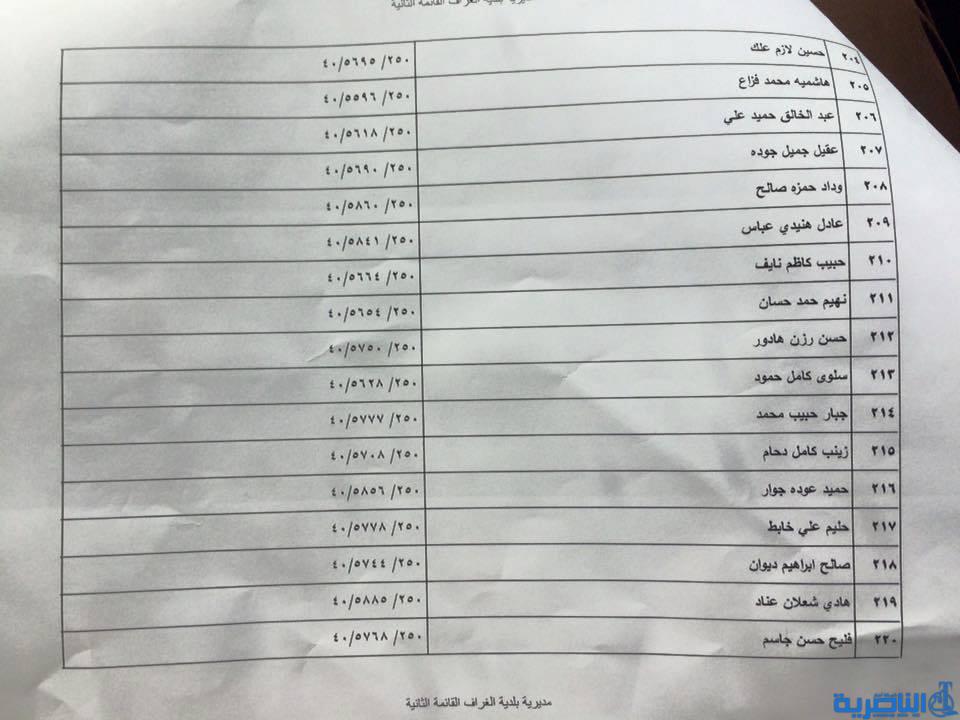 مديرية بلدية الغراف القائمة الثانية
٢٠٤ حسين لازم علك ٤٠/٥٦٩٥ /٢٥٠
٢٠٥ هاشميه محمد فزاع ٤٠/٥٥٩٦ /٢٥٠
٢٠٦ عبد الخالق حميد علي ٤٠/٥٦١٨ /٢٥٠
٢٠٧ عقيل جميل جوده ٤٠/٥٦٩٠ /٢٥٠
٢٠٨ وداد حمزه صالح ٤٠/٥٨٦٠ /٢٥٠
٢٠٩ عادل هنيدي عباس ٤٠/٥٨٤١ /٢٥٠
٢١٠ حبيب كاظم نايف ٤٠/٥٦٦٤ /٢٥٠
٢١١ نهيم حمد حسان ٤٠/٥٦٥٤ /٢٥٠
٢١٢ حسن رزن هادور ٤٠/٥٧٥٠ /٢٥٠
٢١٣ سلوى كامل حمود ٤٠/٥٦٢٨ /٢٥٠
٢١٤ جبار حبيب محمد ٤٠/٥٧٧٧ /٢٥٠
٢١٥ زينب كامل دحام ٤٠/٥٧٠٨ /٢٥٠
٢١٦ حميد عوده جوار ٤٠/٥٨٥٦ /٢٥٠
٢١٧ حليم علي خابط ٤٠/٥٧٧٨ /٢٥٠
٢١٨ صالح ابراهيم ديوان ٤٠/٥٧٤٤ /٢٥٠
٢١٩ هادي شعلان عناد ٤٠/٥٨٨٥ /٢٥٠
٢٢٠ فليح حسن جاسم ٤٠/٥٧٦٨ /٢٥٠
مديرية بلدية الغراف القائمة الثانية
الناصرية